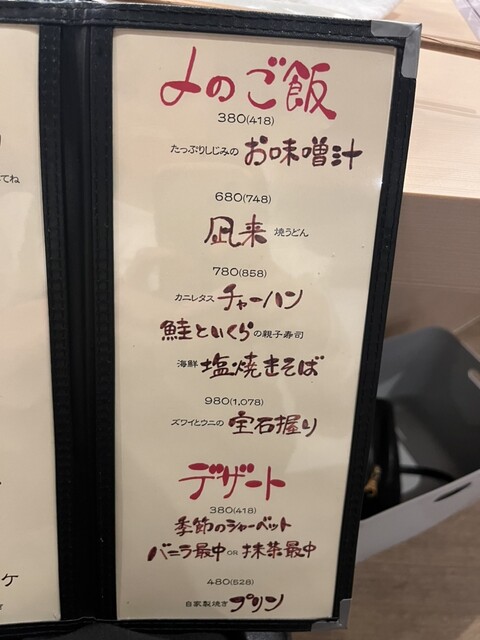 〆のご飯
380(418)
たっぷりしじみの お味噌汁
680(748)
凪来 焼うどん
780(858)
カニレタス チャーハン
鮭といくらの親子寿司
海鮮 塩焼きそば
980(1,078)
ズワイとウニの 宝石握り
デザート
380(418)
季節のシャーベット
バニラ最中 OR 抹茶最中
480(528)
自家製焼き プリン
てね
ケ